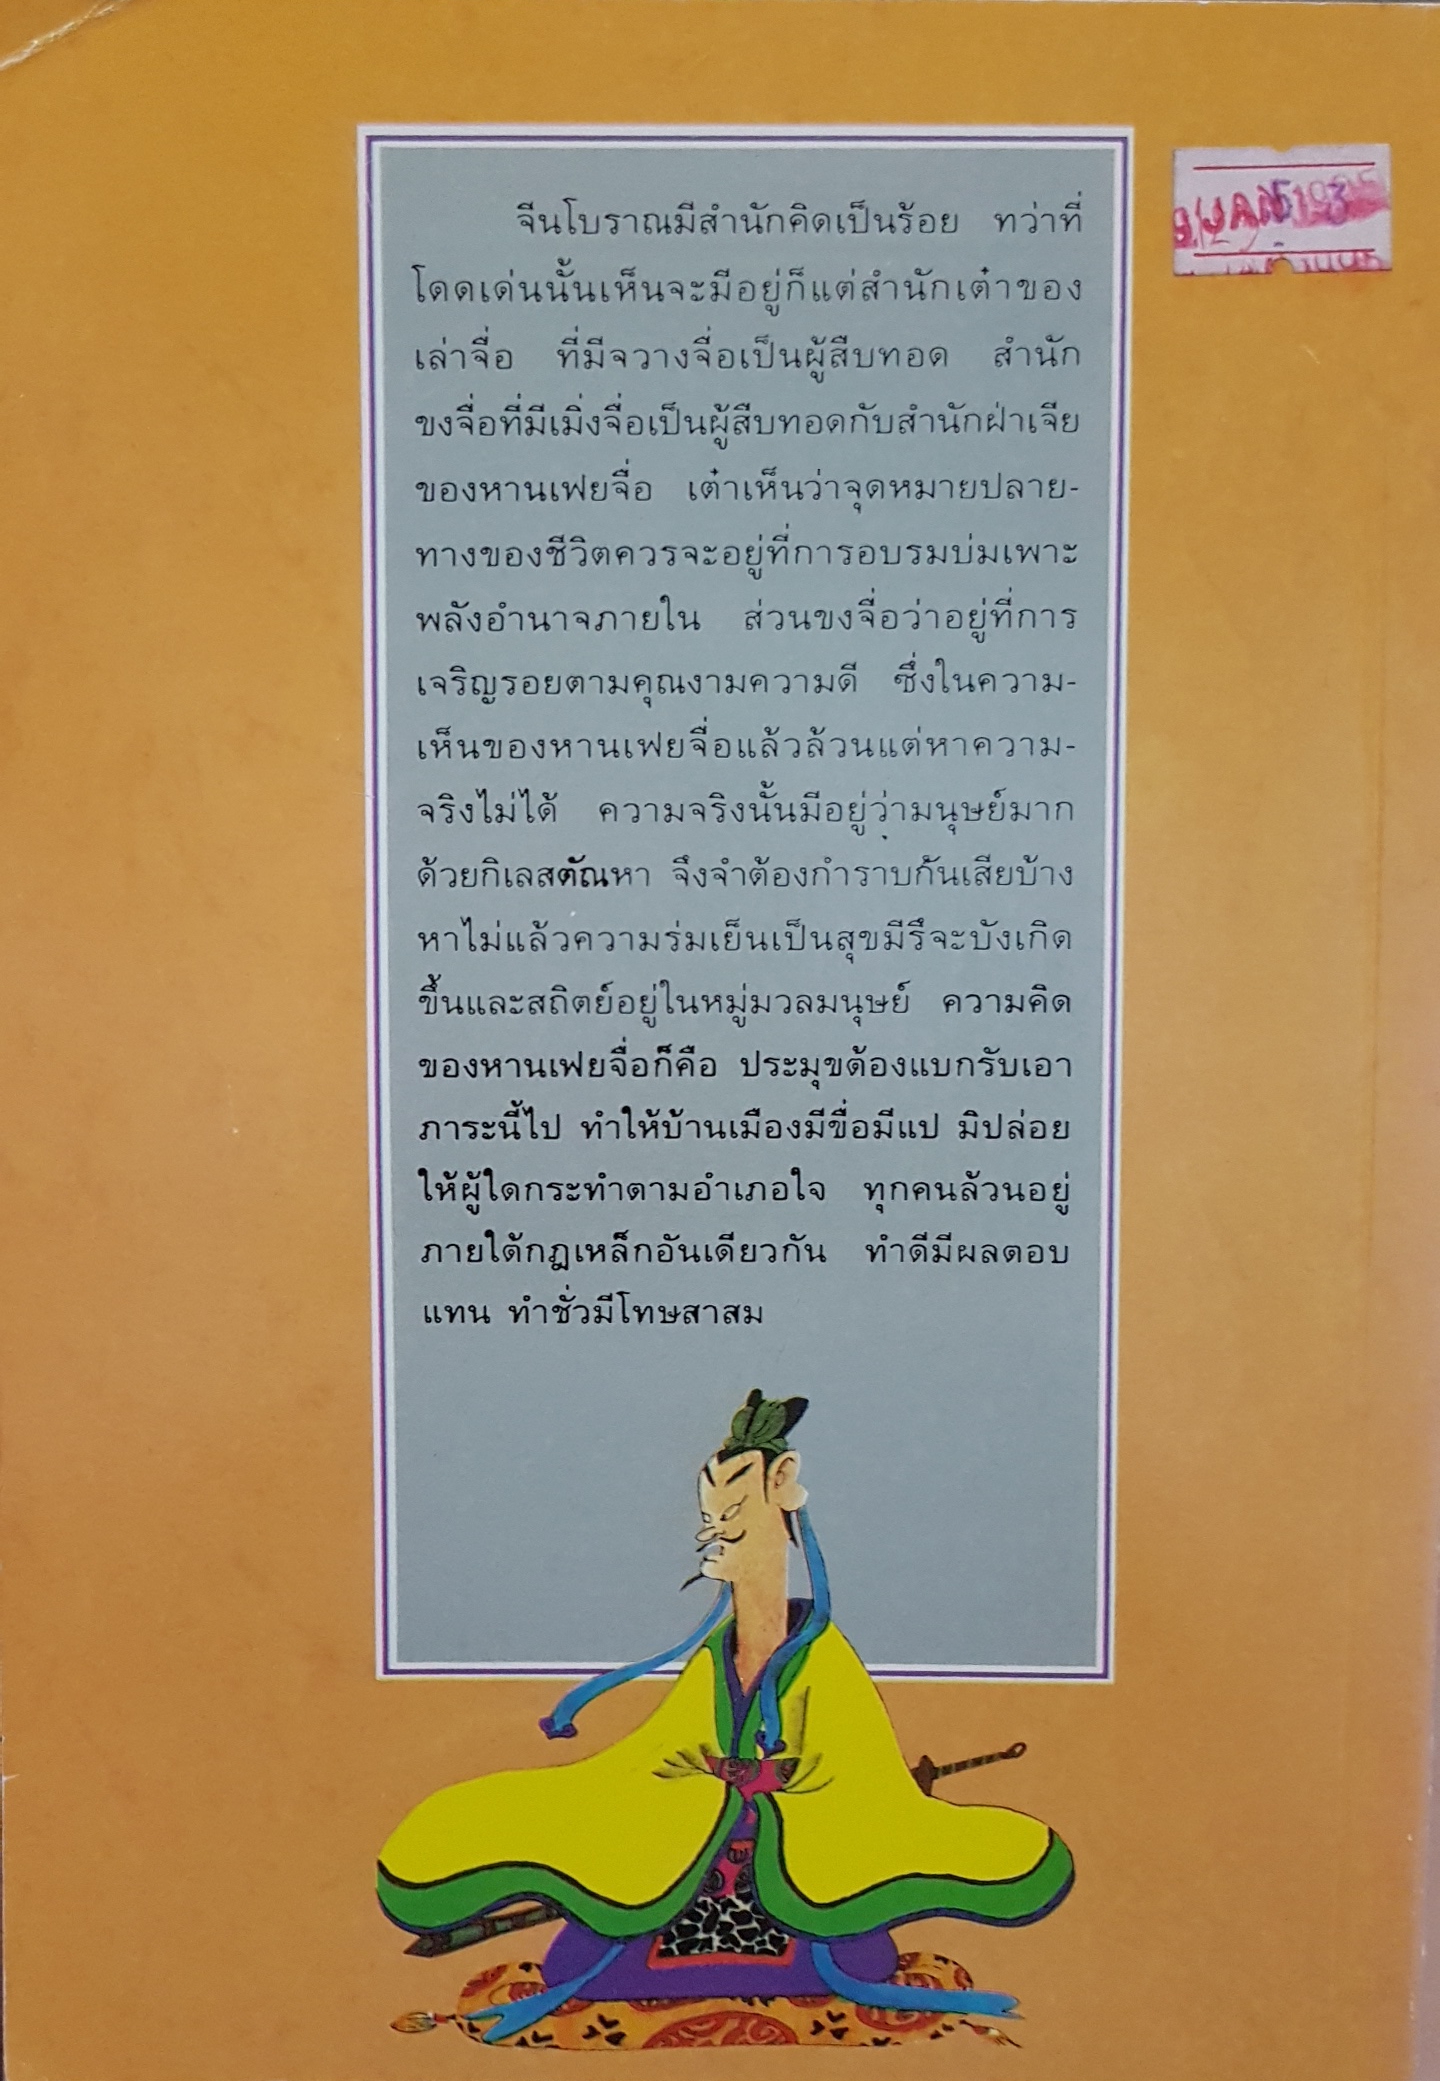 จีนโบราณมีสำนักคิดเป็นร้อย ทว่าที่
โดดเด่นนั้นเห็นจะมีอยู่ก็แต่สำนักเต๋าของ
เล่าจื่อ ที่มีจวางจื่อเป็นผู้สืบทอด สำนัก
ขงจื่อที่มีเมิ่งจื่อเป็นผู้สืบทอดกับสำนักฝ่าเจีย
ของหานเฟยจื่อ เต๋าเห็นว่าจุดหมายปลาย-
ทางของชีวิตควรจะอยู่ที่การอบรมบ่มเพาะ
พลังอำนาจภายใน ส่วนขงจื่อว่าอยู่ที่การ
เจริญรอยตามคุณงามความดี ซึ่งในความ-
เห็นของหานเฟยจื่อแล้วล้วนแต่หาความ-
จริงไม่ได้ ความจริงนั้นมีอยู่ว่ามนุษย์มาก
ด้วยกิเลสตัณหา จึงจำต้องกำราบกันเสียบ้าง
หาไม่แล้วความร่มเย็นเป็นสุขมีรึจะบังเกิด
ขึ้นและสถิตย์อยู่ในหมู่มวลมนุษย์ ความคิด
ของหานเฟยจื่อก็คือ ประมุขต้องแบกรับเอา
ภาระนี้ไป ทำให้บ้านเมืองมีขื่อมีแป มิปล่อย
ให้ผู้ใดกระทำตามอำเภอใจ ทุกคนล้วนอยู่
ภายใต้กฎเหล็กอันเดียวกัน ทำดีมีผลตอบ
แทน ทำชั่วมีโทษสาสม